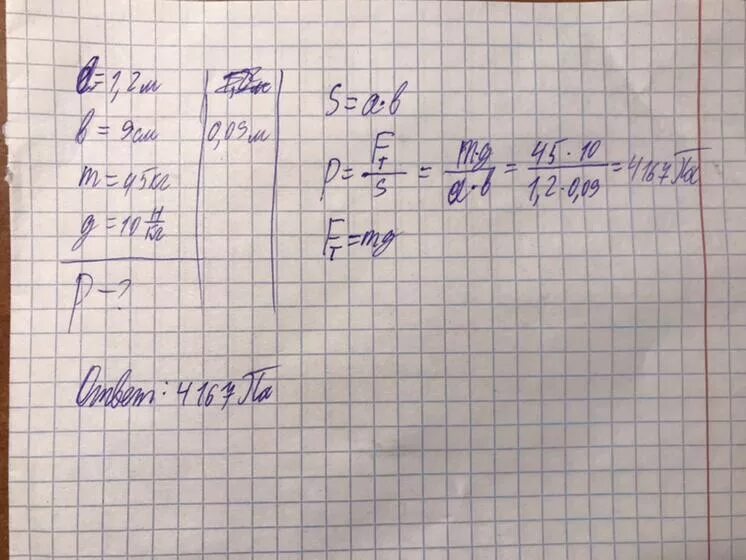 a=1,2м
в=9см 0,09м
m=45кг
g=10 Н/кг
P-?
S=a·в
P=Fт/S=m·g/a·в=45·10/1,2·0,09=4167Па
Fт=mg
Ответ: 4167Па